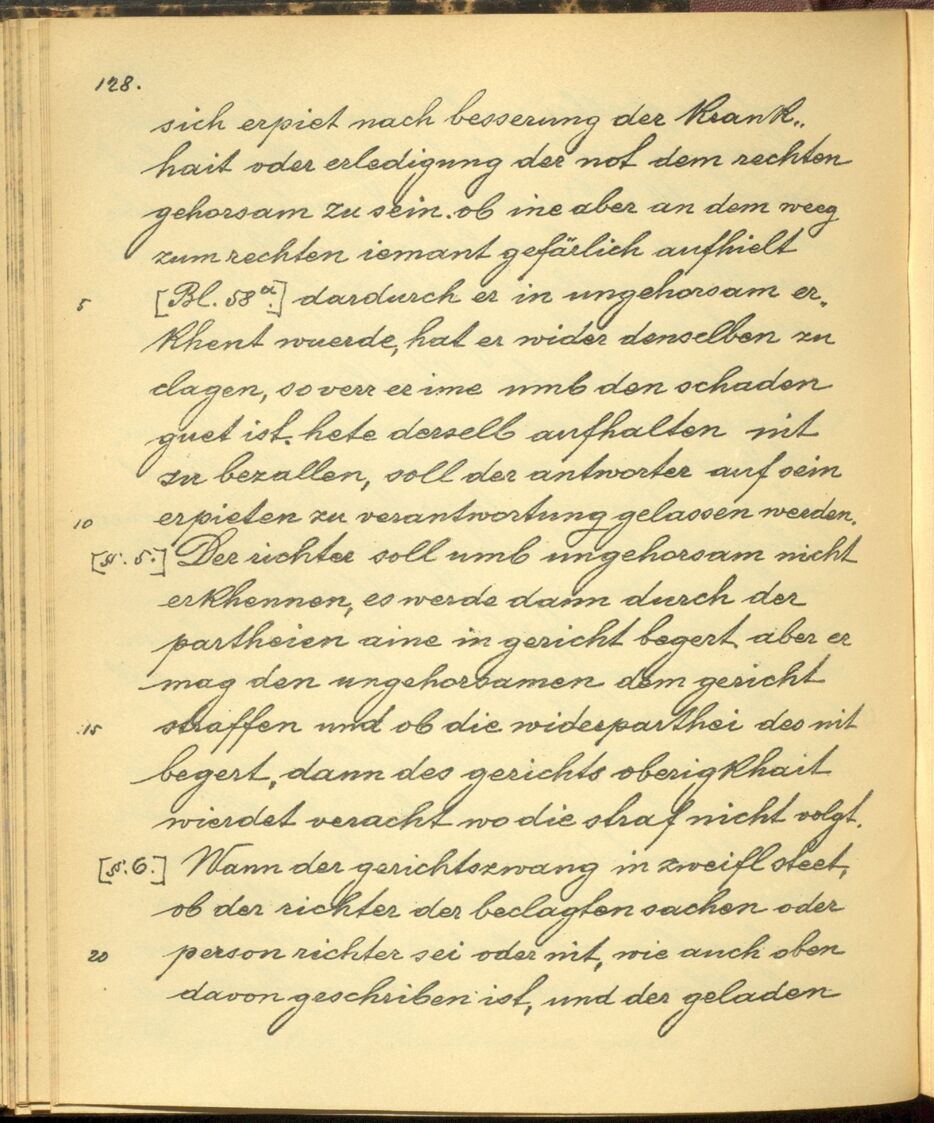 128.
sich erpiet nach besserung der Krank„
hait oder erledigung der not dem rechten
gehorsam zu sein. ob ine aber an dem weeg
zum rechten iemant gefärlich aufhielt
5 [Bl. 58a.] dardurch er in ungehorsam er„
khent wuerde, hat er wider denselben zu
clagen, so verr er ime umb den schaden
guet ist. hete derselb aufhalten nit
zu bezallen, soll der antworter auf sein
10 erpieten zu verantwortung gelassen werden.
[§. 5.] Der richter soll umb ungehorsam nicht
erkhennen, es werde dann durch der
partheien aine in gericht begert. aber er
mag den ungehorsamen dem gericht
15 straffen und ob die widerparthei des nit
begert, dann des gerichts oberigkhait
wierdet veracht wo die straf nicht volgt.
[§. 6.] Wann der gerichtszwang in zweifl steet,
ob der richter der beclagten sachen oder
20 person richter sei oder nit, wie auch oben
davon geschriben ist, und der geladen